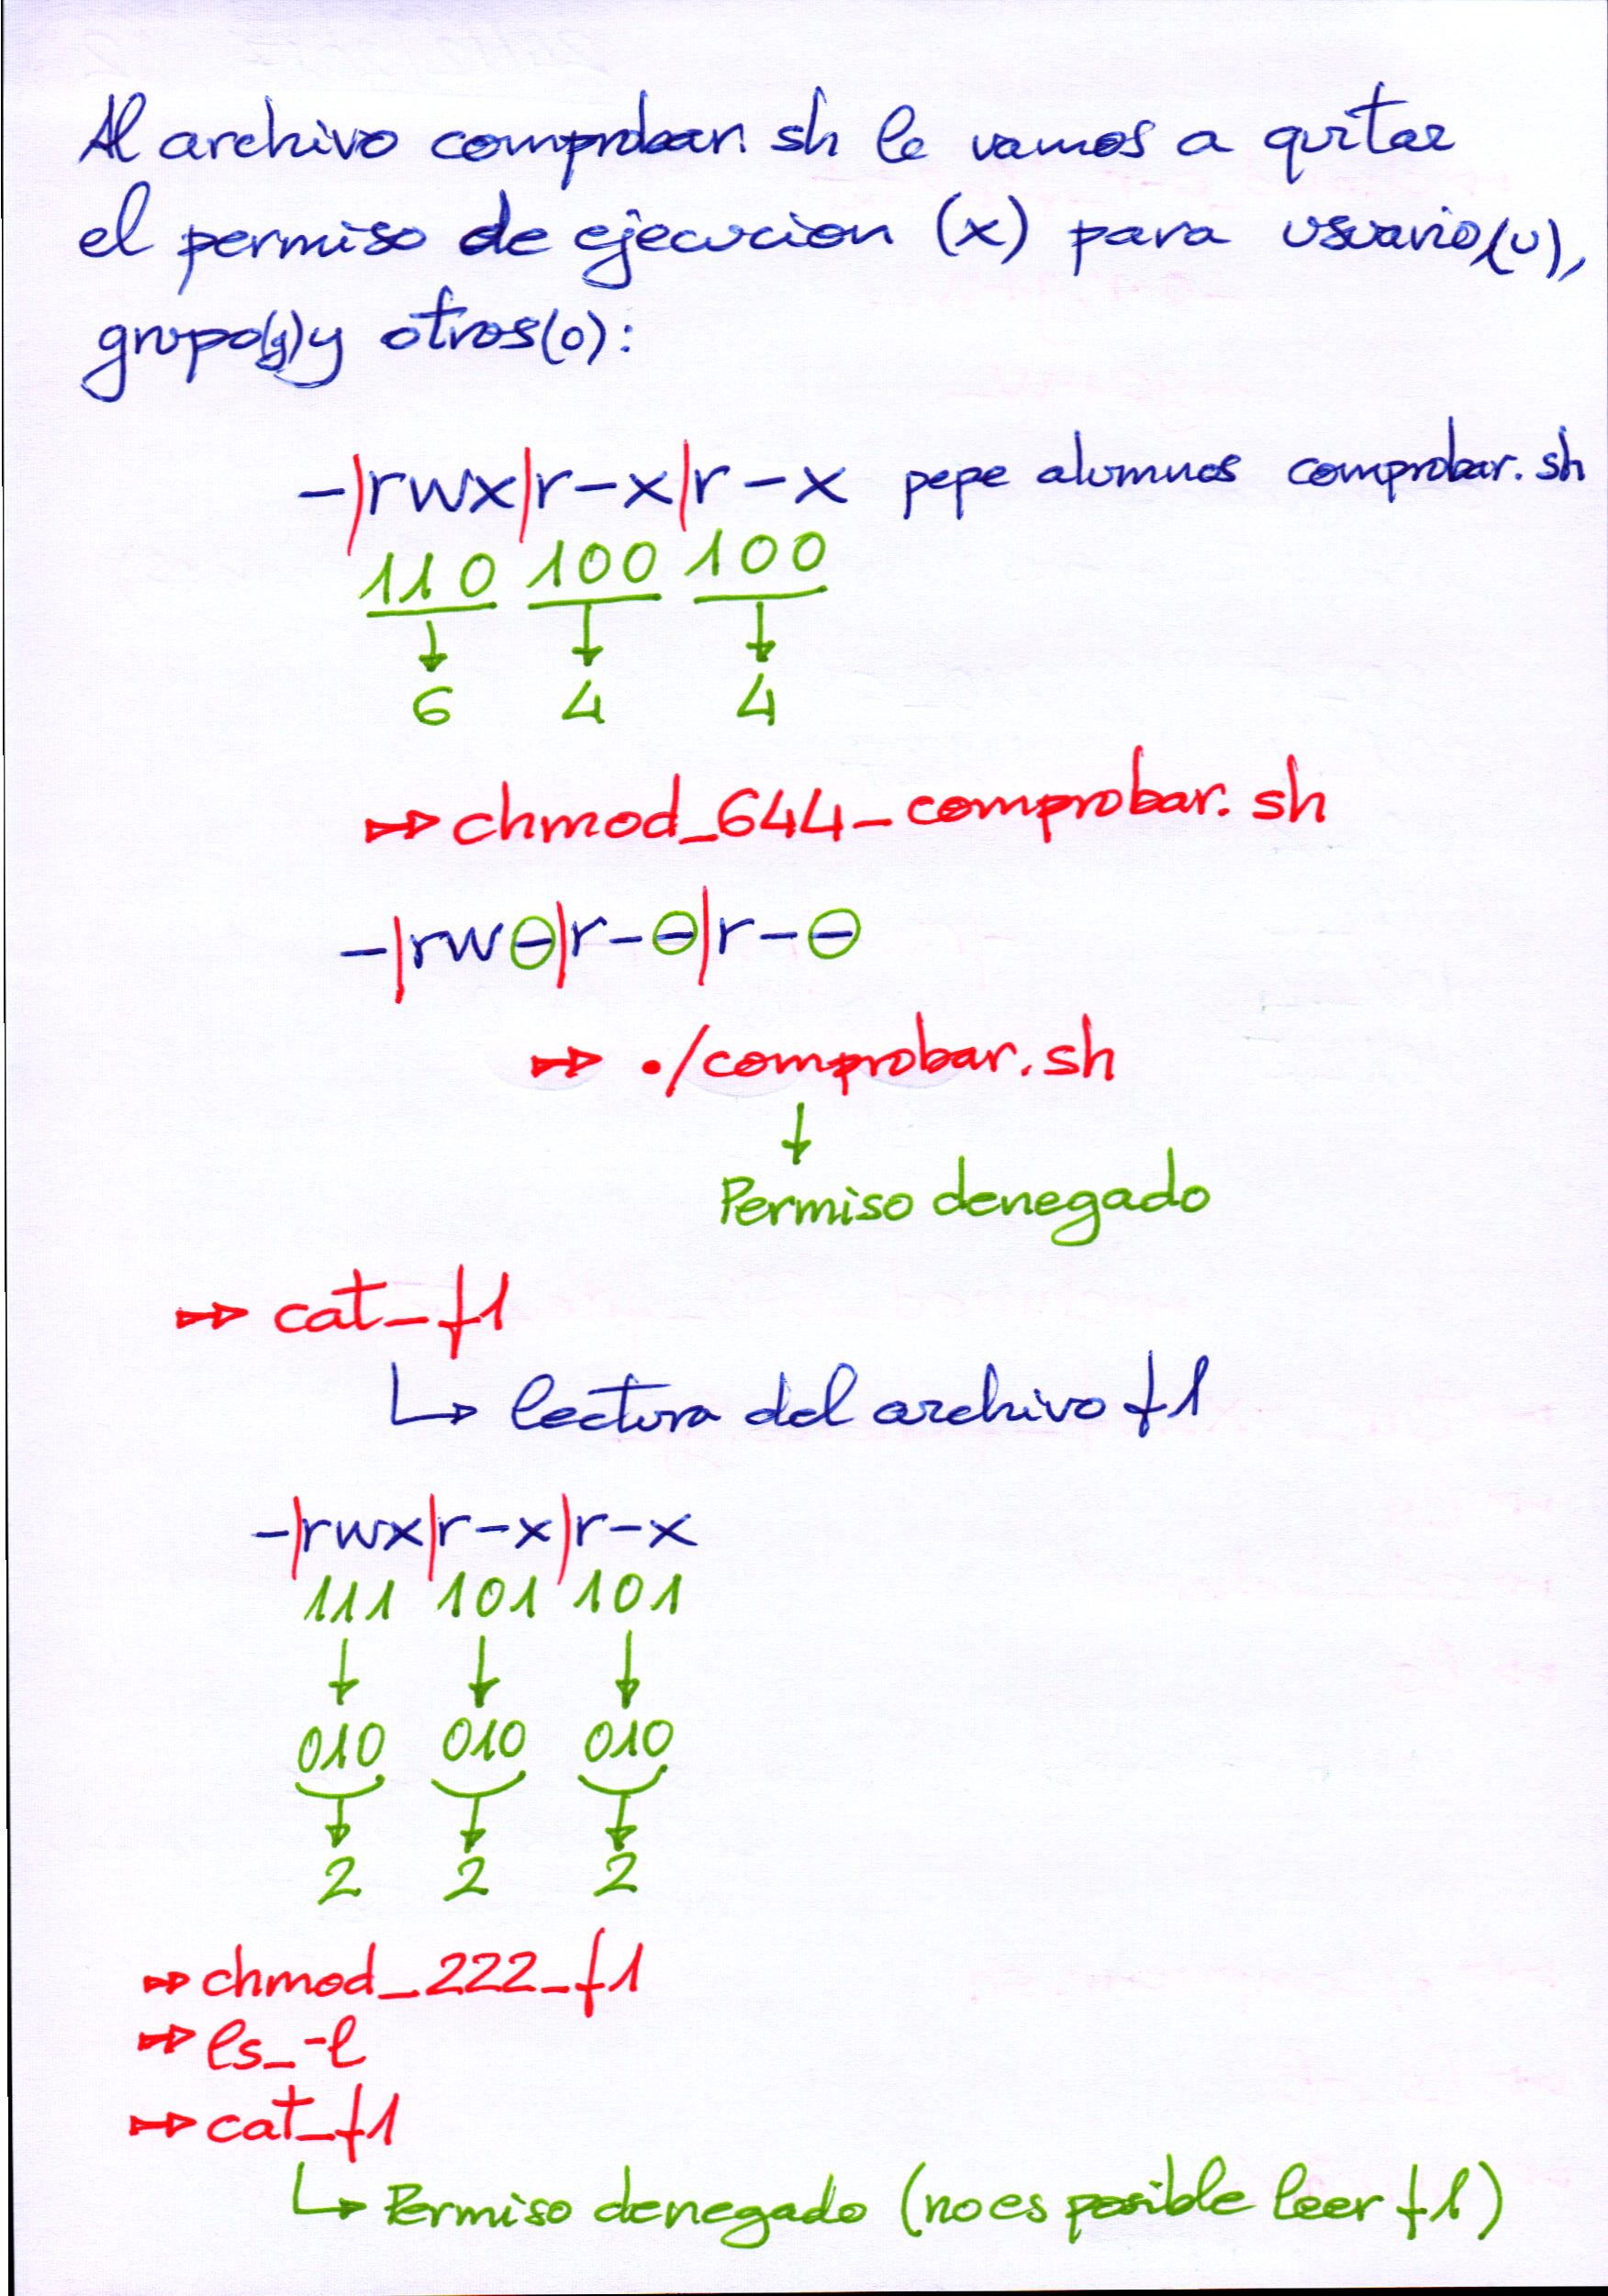 Al archivo comprobar.sh le vamos a quitar
el permiso de ejecucion (x) para usuario(u),
grupo(g) y otros(o):
-|rwx|r-x|r-x pepe alumnos comprobar.sh
110 100 100
6 4 4
chmod_644_comprobar.sh
-|rw-|r--|r--
./comprobar.sh
Permiso denegado
cat_f1
lectura del archivo f1
-|rwx|r-x|r-x
111 101 101
010 010 010
2 2 2
chmod_222_f1
ls_-l
cat_f1
Permiso denegado (no es posible leer f1)